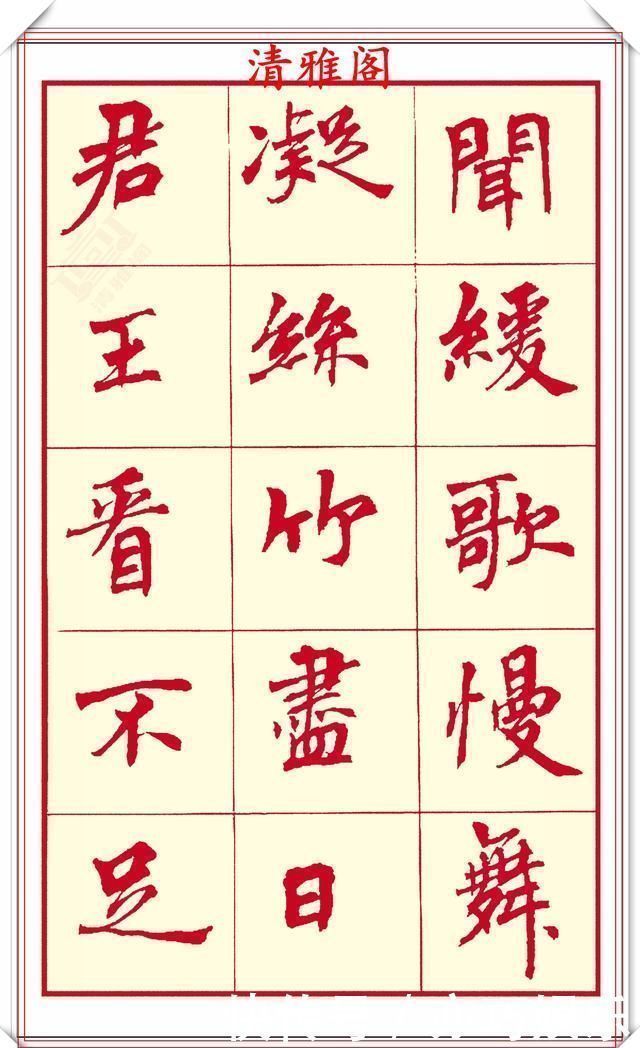 清雅阁
聞緩歌慢舞
凝絲竹盡日
君王看不足